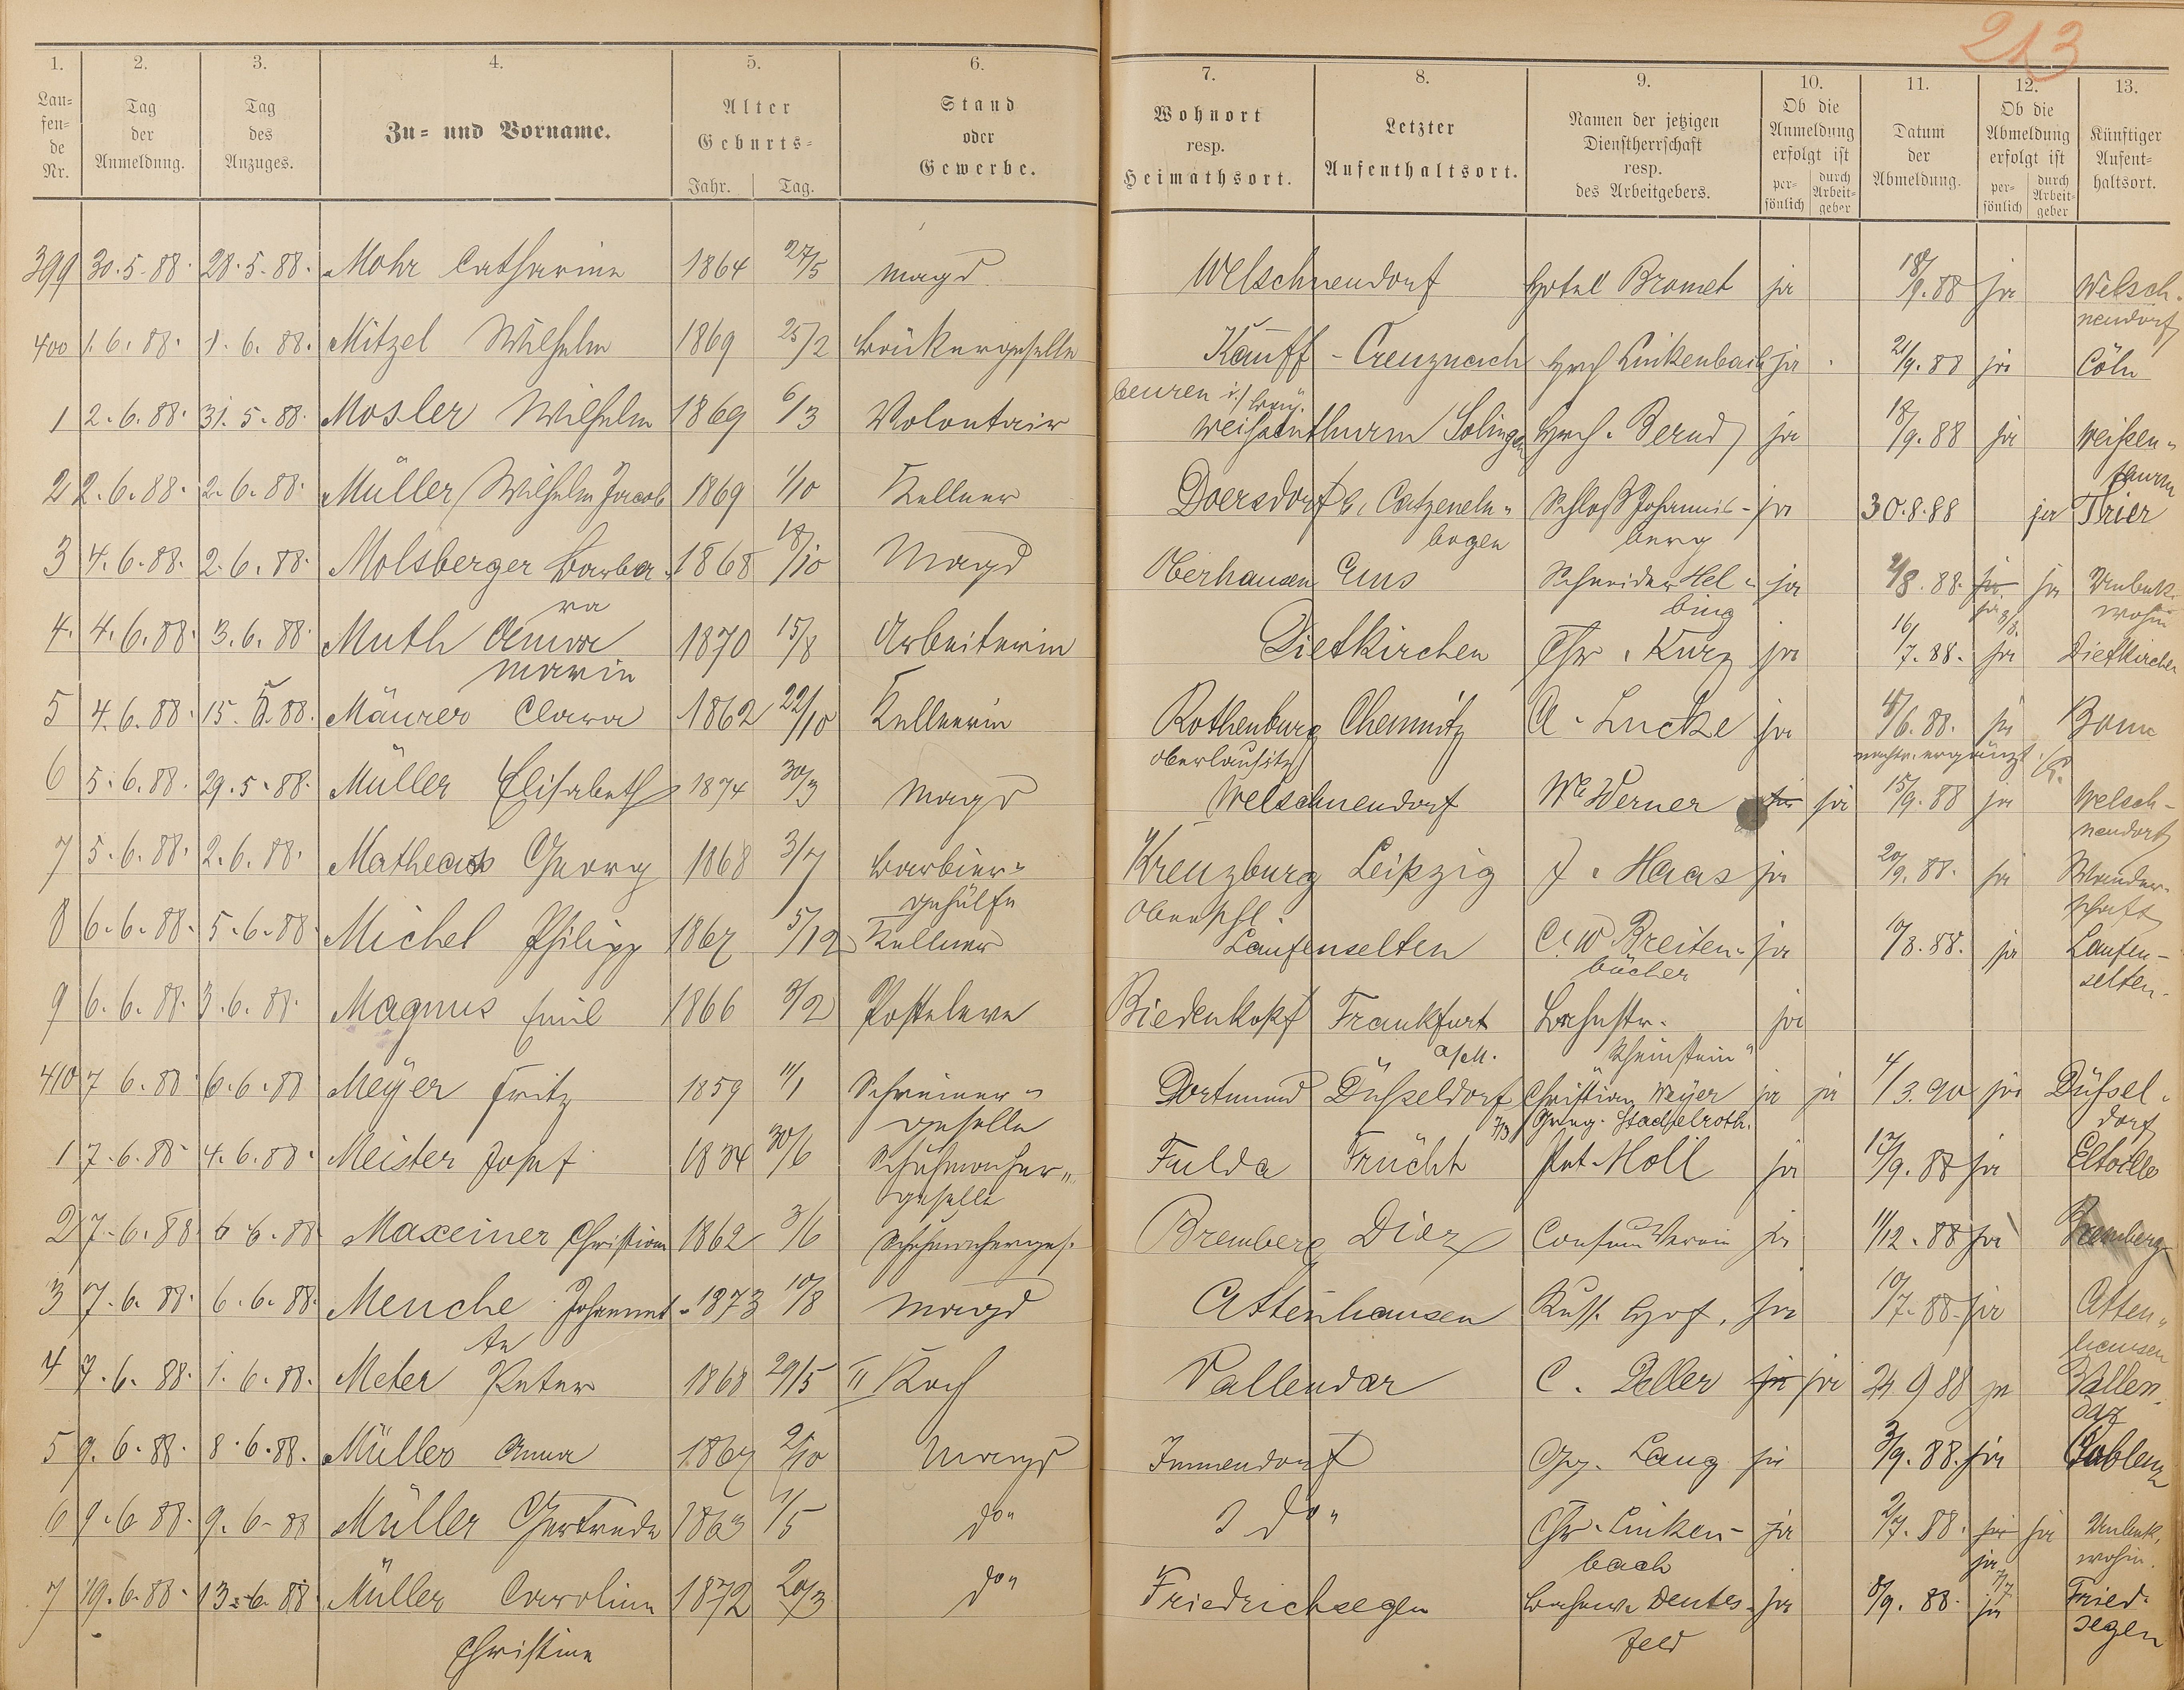 213
1. 2. 3. 4. 5. 6. 7. 8. 9. 10. 11. 12. 13.
Lau=
fen=
de
Nr.
Tag
der
Anmeldung.
Tag
des
Anzuges.
Zu= und Vorname.
Alter
Geburts=
Jahr. Tag.
Stand
oder
Gewerbe.
Wohnort
resp.
Heimathsort.
Letzter
Aufenthaltsort.
Namen der jetzigen
Dienstherrschaft
resp.
des Arbeitgebers.
Ob die
Anmeldung
erfolgt ist
per=
sönlich
durch
Arbeit=
geber
Datum
der
Abmeldung.
Ob die
Abmeldung
erfolgt ist
per=
sönlich
durch
Arbeit=
geber
Künftiger
Aufent=
haltsort.
399 30.5.88. 28.5.88. Mohr Catharina 1864 27/5 Magd Welschneudorf Hotel Bromet ja 18/9.88 ja Welsch-
neudorf
400 1.6.88. 1.6.88. Mitzel Wilhelm 1869 25/2 Bäckergeselle Kauff- Creuznach Hrch Linkenbach ja 21/9.88 ja Cöln
beuren
1 2.6.88. 31.5.88. Mosler Wilhelm 1869 6/3 Volontair Weißenthurm Solingen Hrch. Bernd ja 18/9.88 ja Weißen-
turm
2 2.6.88. 2.6.88. Müller Wilhelm Jacob 1869 1/10 Kellner Doersdorf b. Catzeneln- Schloß Johannis- ja 30.8.88 ja Trier
bogen berg
3 4.6.88. 2.6.88. Molsberger Barba- 1868 18/10 Magd Oberhausen Ems Schneider Hel- ja 2/8.88. ja ja Unbek.
ra bing ja 3/8. wohin
4. 4.6.88. 3.6.88. Muth Anna 1870 15/8 Arbeiterin Dietkirchen Chr. Kurz ja 16/7.88. ja Dietkirchen
Marie
5 4.6.88. 15.5.88. Mäurer Clara 1862 22/10 Kellnerin Rothenburg Chemnitz A. Lucke ja /6.88. ja Bonn
Oberlausitz nachtr. ergänzt.
6 5.6.88. 29.5.88. Müller Elisabeth 1874 30/3 Magd Welschneudorf We Werner ja ja 15/9.88 ja Welsch-
neudorf
7 5.6.88. 2.6.88. Matheas Georg 1868 3/7 Barbier- Kreuzburg Leipzig J. Haas ja 20/9.88. ja Wander-
gehülfe schaft
8 6.6.88. 5.6.88. Michel Philipp 1867 5/12 Kellner Laufenselten C.W Breiten- ja /8.88. ja Laufen-
bücher selten.
9 6.6.88. 3.6.88. Magnus Emil 1866 9/2 Posteleve Biedenkopf Frankfurt Bahnstr. ja
a/M. Rheinstein"
410 7 6.88 6.6.88 Meÿer Fritz 1859 11/1 Schreiner- Dortmund Düsseldorf Christian Meyer ja ja 4/3.90 ja Düssel-
geselle Stachelroth. dorf
1 7.6.88 4.6.88. Meister Josef 1834 30/6 Schuhmacher- Fulda Frücht Pet. Noll ja 17/9.88 ja Eltville
geselle
2 7.6.88 6 6.88 Maxeiner Christian 1862 3/6 Schuhmacherges. Bremberg Diez Consum Verein ja 11/12.88 ja Bremberg
3 7.6.88. 6.6.88. Menche Johannet- 1873 10/8 Magd Attenhausen Russ. Hof. ja 10/7.88. ja Atten-
te hausen
4 7.6.88. 1.6.88. Meter Peter 1868 29/5 II Koch Vallendar C. Peller ja ja 24 9 88 ja Vallen-
dar
5 9.6.88. 8.6.88. Müller Anna 1867 2/10 Magd Immendorf Gg. Lang ja 3/9.88. ja Coblenz
6 9.6.88. 9.6.88 Müller Gertrude 1863 1/5 do do Chr. Linken- ja 2/7.88. ja ja Unbek.
bach ja 7/7 wohin.
7 19.6.88. 13.6.88. Müller Caroline 1872 20/3 do Friedrichsegen Bahnw. Dentes- ja 8/9.88. ja Fried-
Christine feld segen